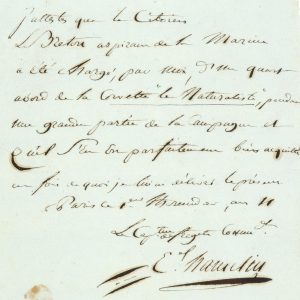 J'atteste que le Citoien
L. Breton aspirant de la Marine
a été chargé, par moi, d'un quart
abord de la Corvette le Naturaliste, pendant
une grande partie de la Campagne et
qu'il s'en est parfaitement bien acquitté
en foi de quoi je lui ai délivré le présent
Paris le 1er Thermidor an 11
Le Capne de frégate Commdt
El hamelin